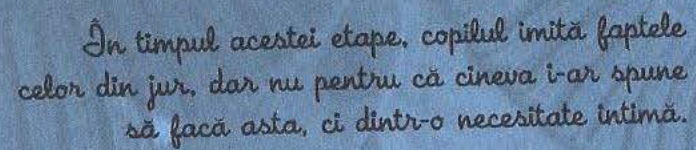 În timpul acestei etape, copilul imită faptele
celor din jur, dar nu pentru că cineva i-ar spune
să facă asta, ci dintr-o necesitate intimă.